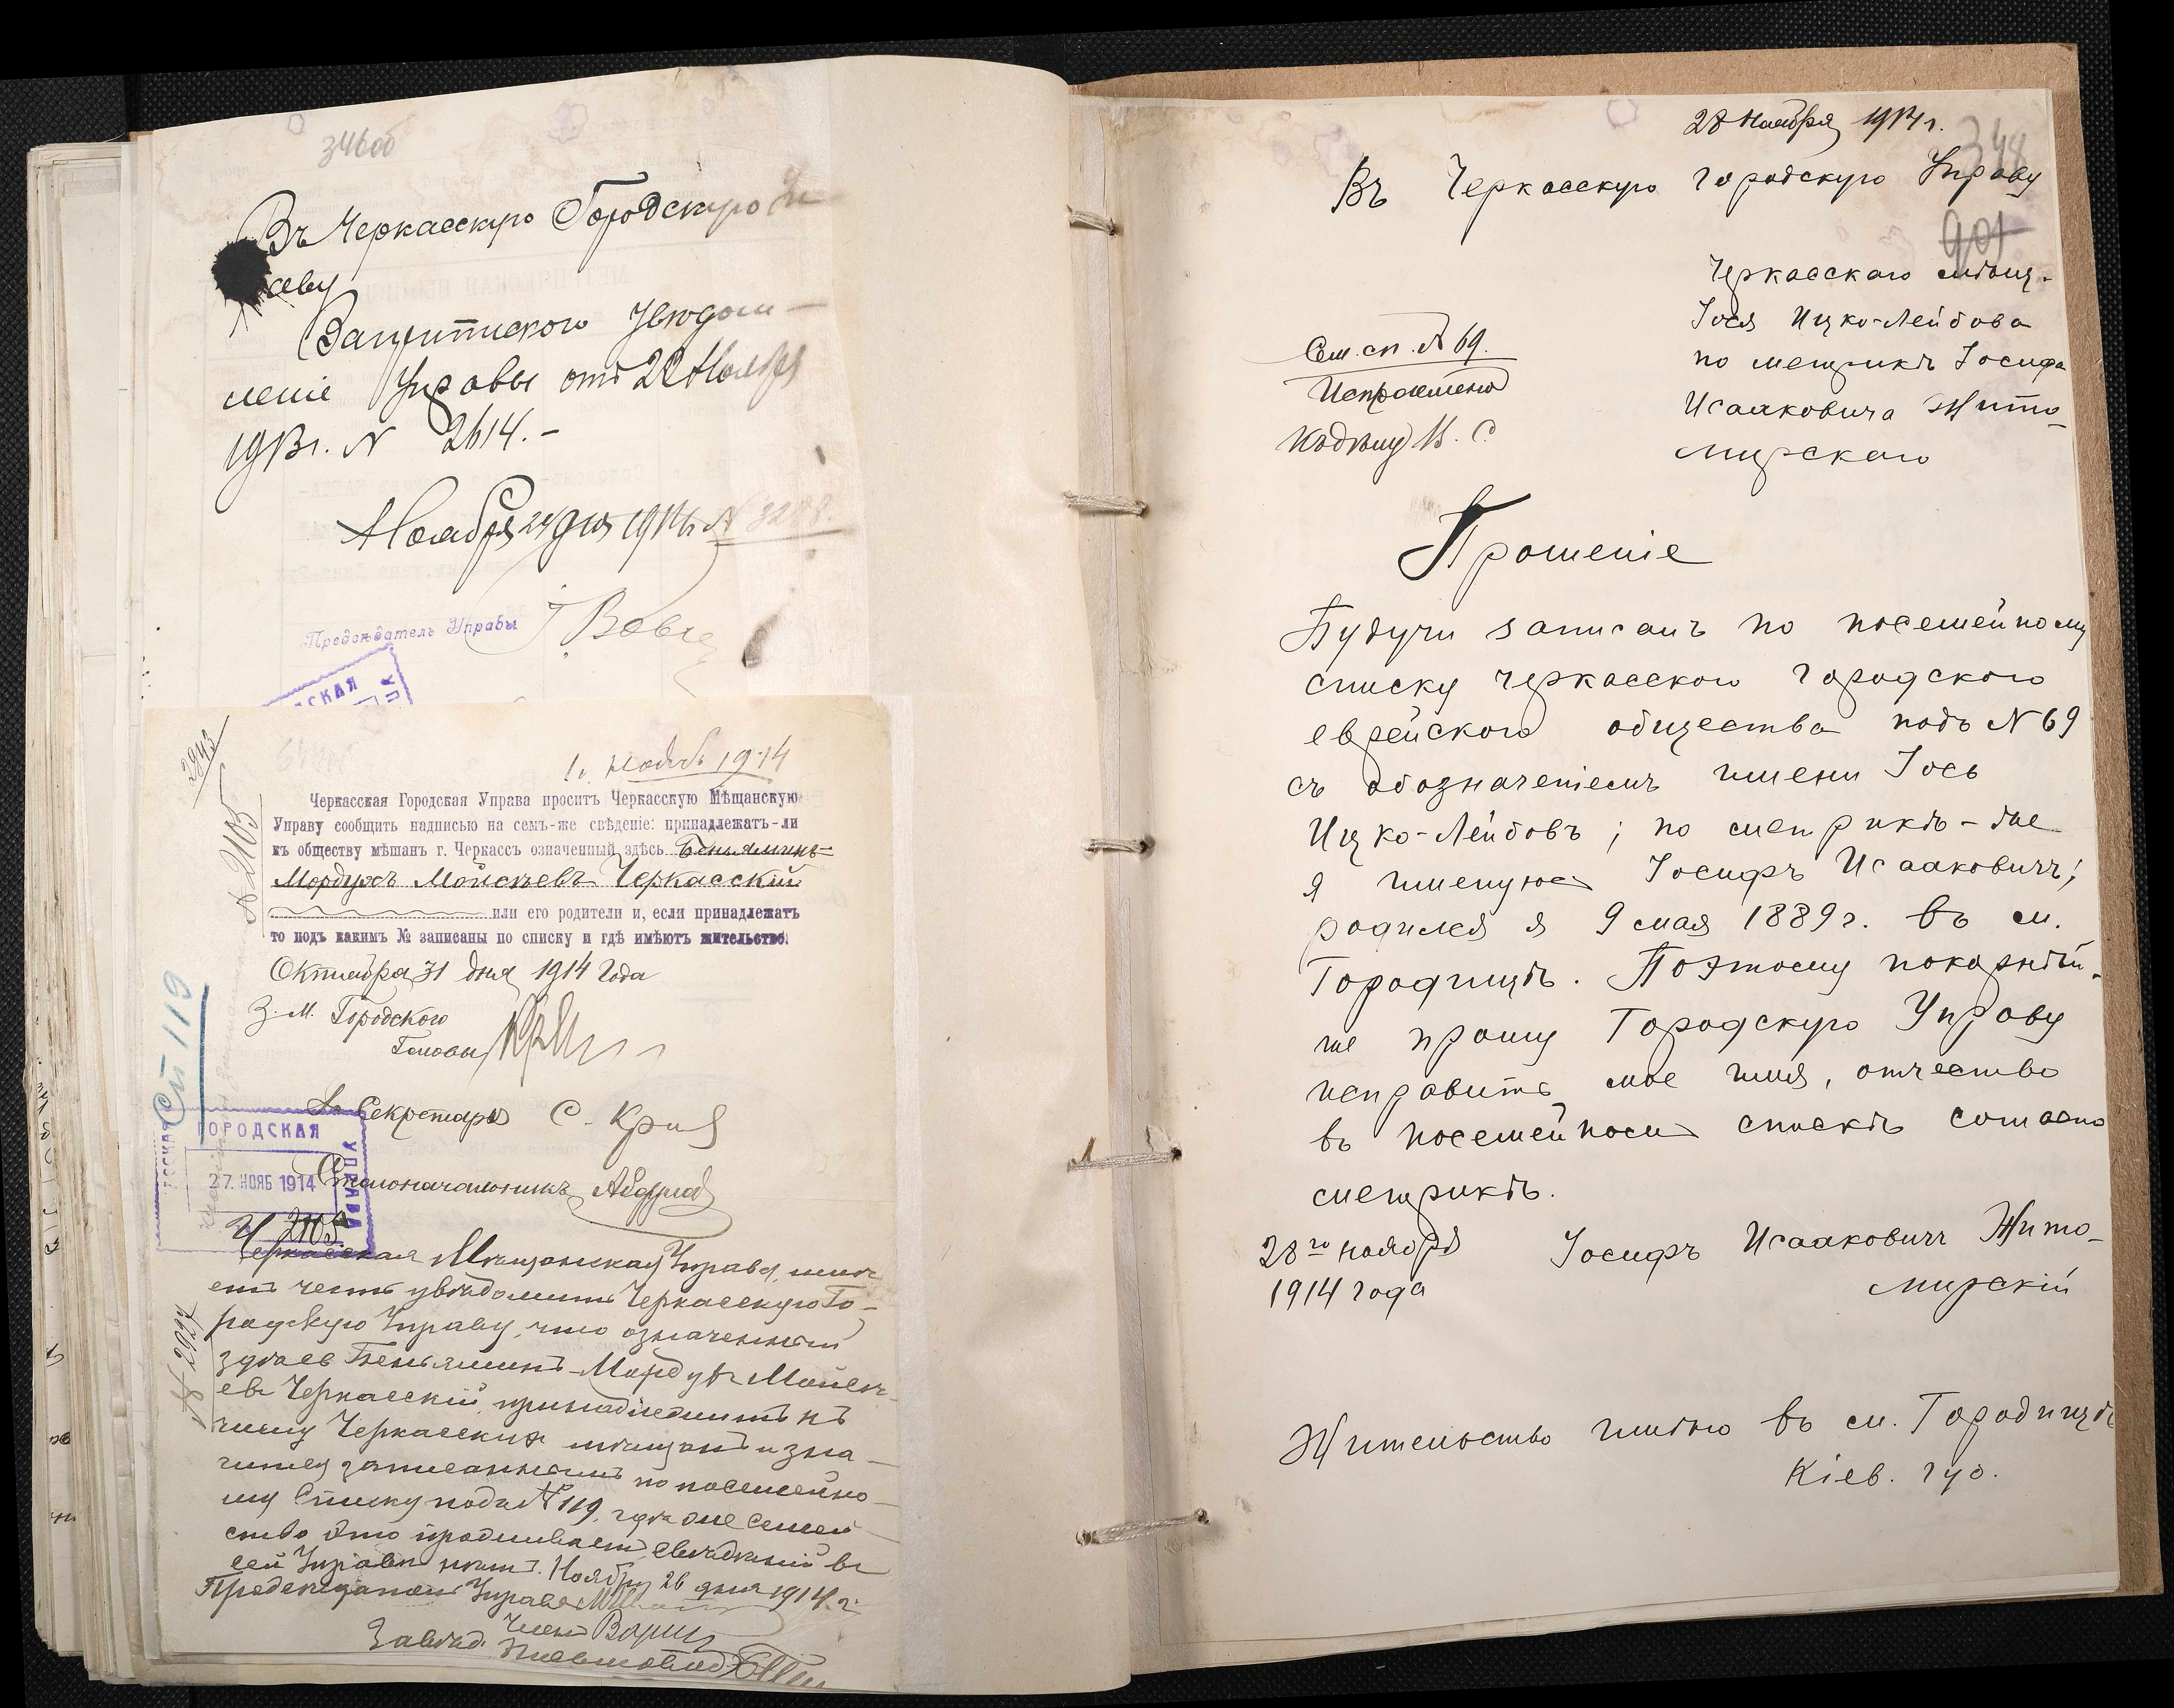 346об
Въ Черкасскую Городскую
аву
ление Управы отъ 22 Ноября
1913г. N 2614.-
Ноября 24 дня 1914 г. N 3288.
Председатель Управы
СКАЯ
2943
N 2105
1. Нояб. 1914
Черкасская Городская Управа проситъ Черкасскую Мѣщанскую
Управу сообщить надписью на семъ-же свѣдение: принадлежатъ-ли
къ обществу мѣщанъ г. Черкассъ означенный здѣсь Беньяминъ-
Мордухъ Мойсеевъ Черкасскій
или его родители и, если принадлежатъ
то подъ какимъ № записаны по списку и гдѣ имѣютъ жительство.
Октября 31 дня 1914 года
З. М. Городского
Головы
Сп 119
Секретаря С. Кри
ГОРОДСКАЯ
УПРАВА
27. НОЯБ 1914
Столоначальникъ
2105
Черкасская Мѣщанская Управа имѣ
етъ честь увѣдомить Черкасскую Го-
родскую Управу, что означенный
здѣсь Беньяминъ-Мордухъ Мойсе-
евъ Черкасскій, принадлежитъ къ
числу Черкасскихъ мѣщанъ и зна-
чится записаннымъ по посемейно-
му списку подъ № 119, гдѣ же семей
ство это проживаетъ, свѣдѣній въ
сей Управѣ нѣтъ. Ноября 26 дня 1914 г.
N 2927
Председатель Управы
Членъ
Завѣд.
28 Ноября 1914 г.
348
Въ Черкасскую Городскую Управу
901
Черкасскаго мѣщ.
Іося Ицко-Лейбова
по метрикѣ Іосифа
Исааковича Жито-
мирскаго
Сем. сп. N 69.
Исправлено
Къ дѣлу
Прошеніе
Будучи записанъ по посемейному
списку черкасскаго городского
еврейскаго общества подъ N 69
съ обозначеніемъ имени Іось
Ицко-Лейбовъ; по метрикѣ-же
я именуюсь Іосифъ Исааковичъ;
родился я 9 мая 1889 г. въ м.
Городищѣ. Поэтому покорнѣй-
ше прошу Городскую Управу
исправить мое имя, отчество
въ посемейномъ спискѣ согласно
метрикѣ.
28го ноября Іосифъ Исааковичъ Жито-
1914 года мирскій
Жительство имѣю въ м. Городищѣ
Кіев. губ.